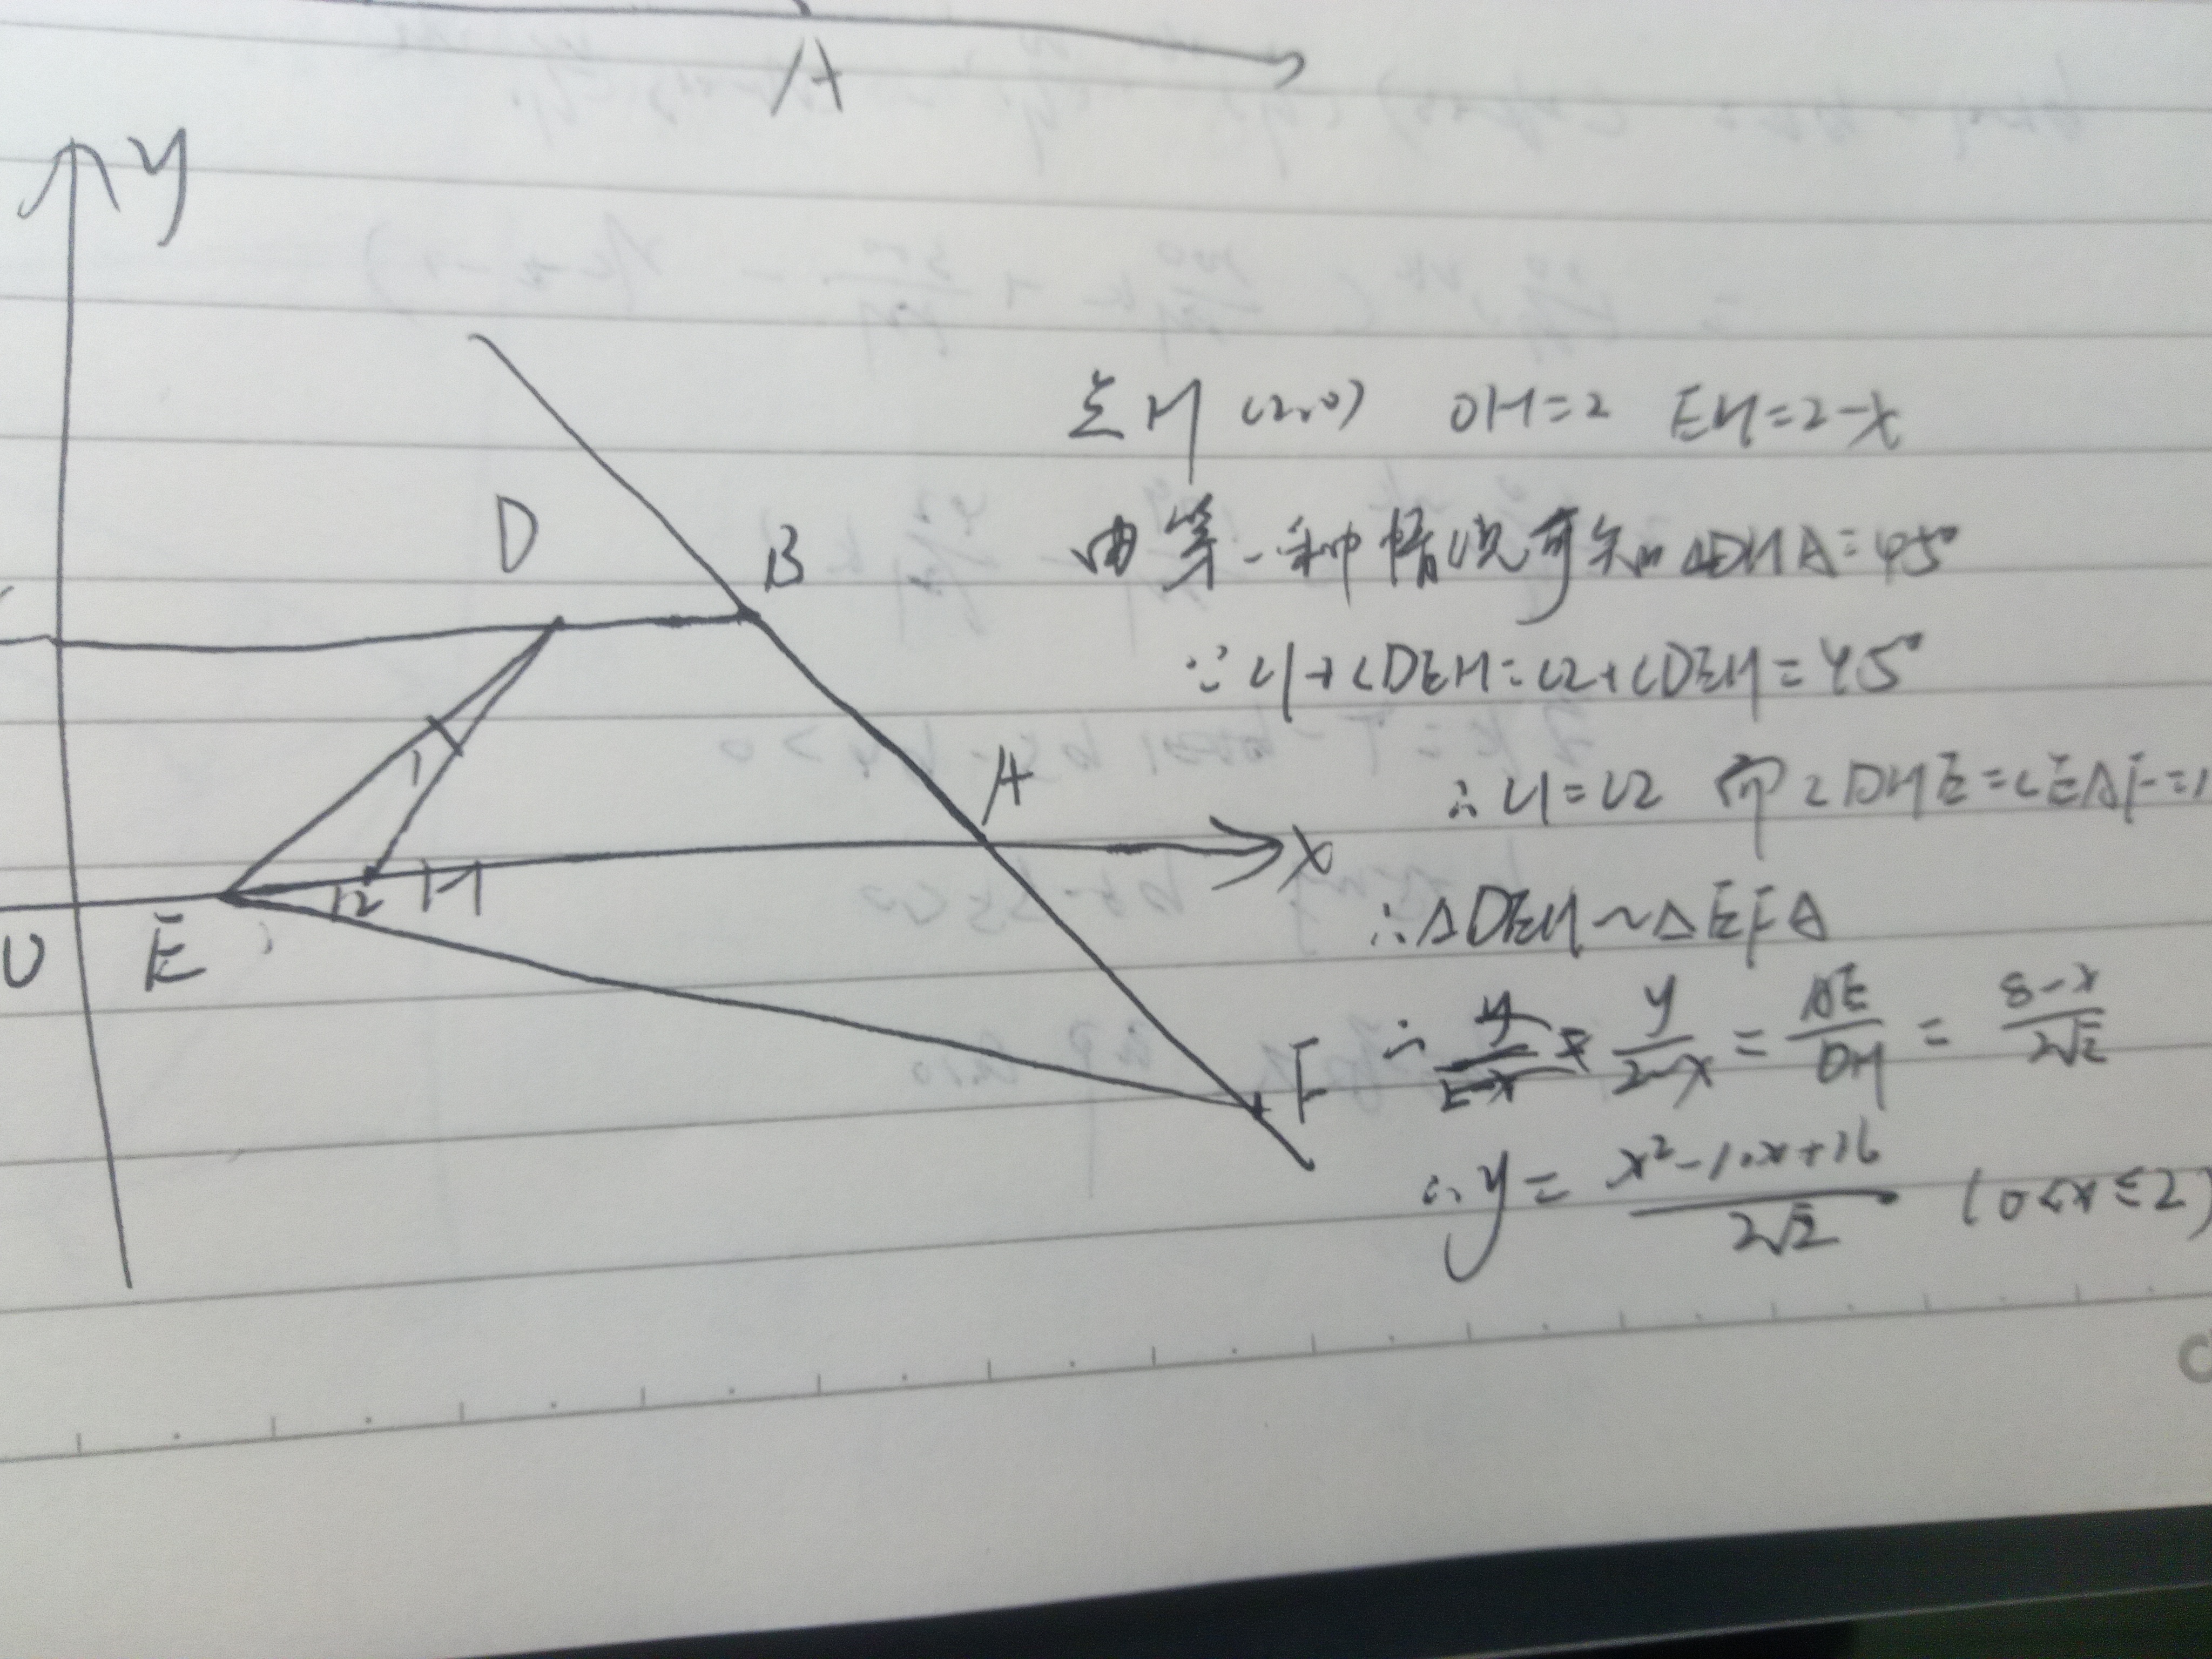 A
y
D
B
点H (2,0) OH=2 EH=2-x
由第一种情况可知∠DHA=45°
∵∠1+∠DEH=∠2+∠DEH=45°
A
∴∠1=∠2 而∠DHE=∠EAF=1
1
x
12 H
∴△DEH∽△EFA
O E
F
∴ y/(2-x) = AE/DH = (8-x)/(2√2)
∴ y= (x²-10x+16)/(2√2) (0<x≤2)